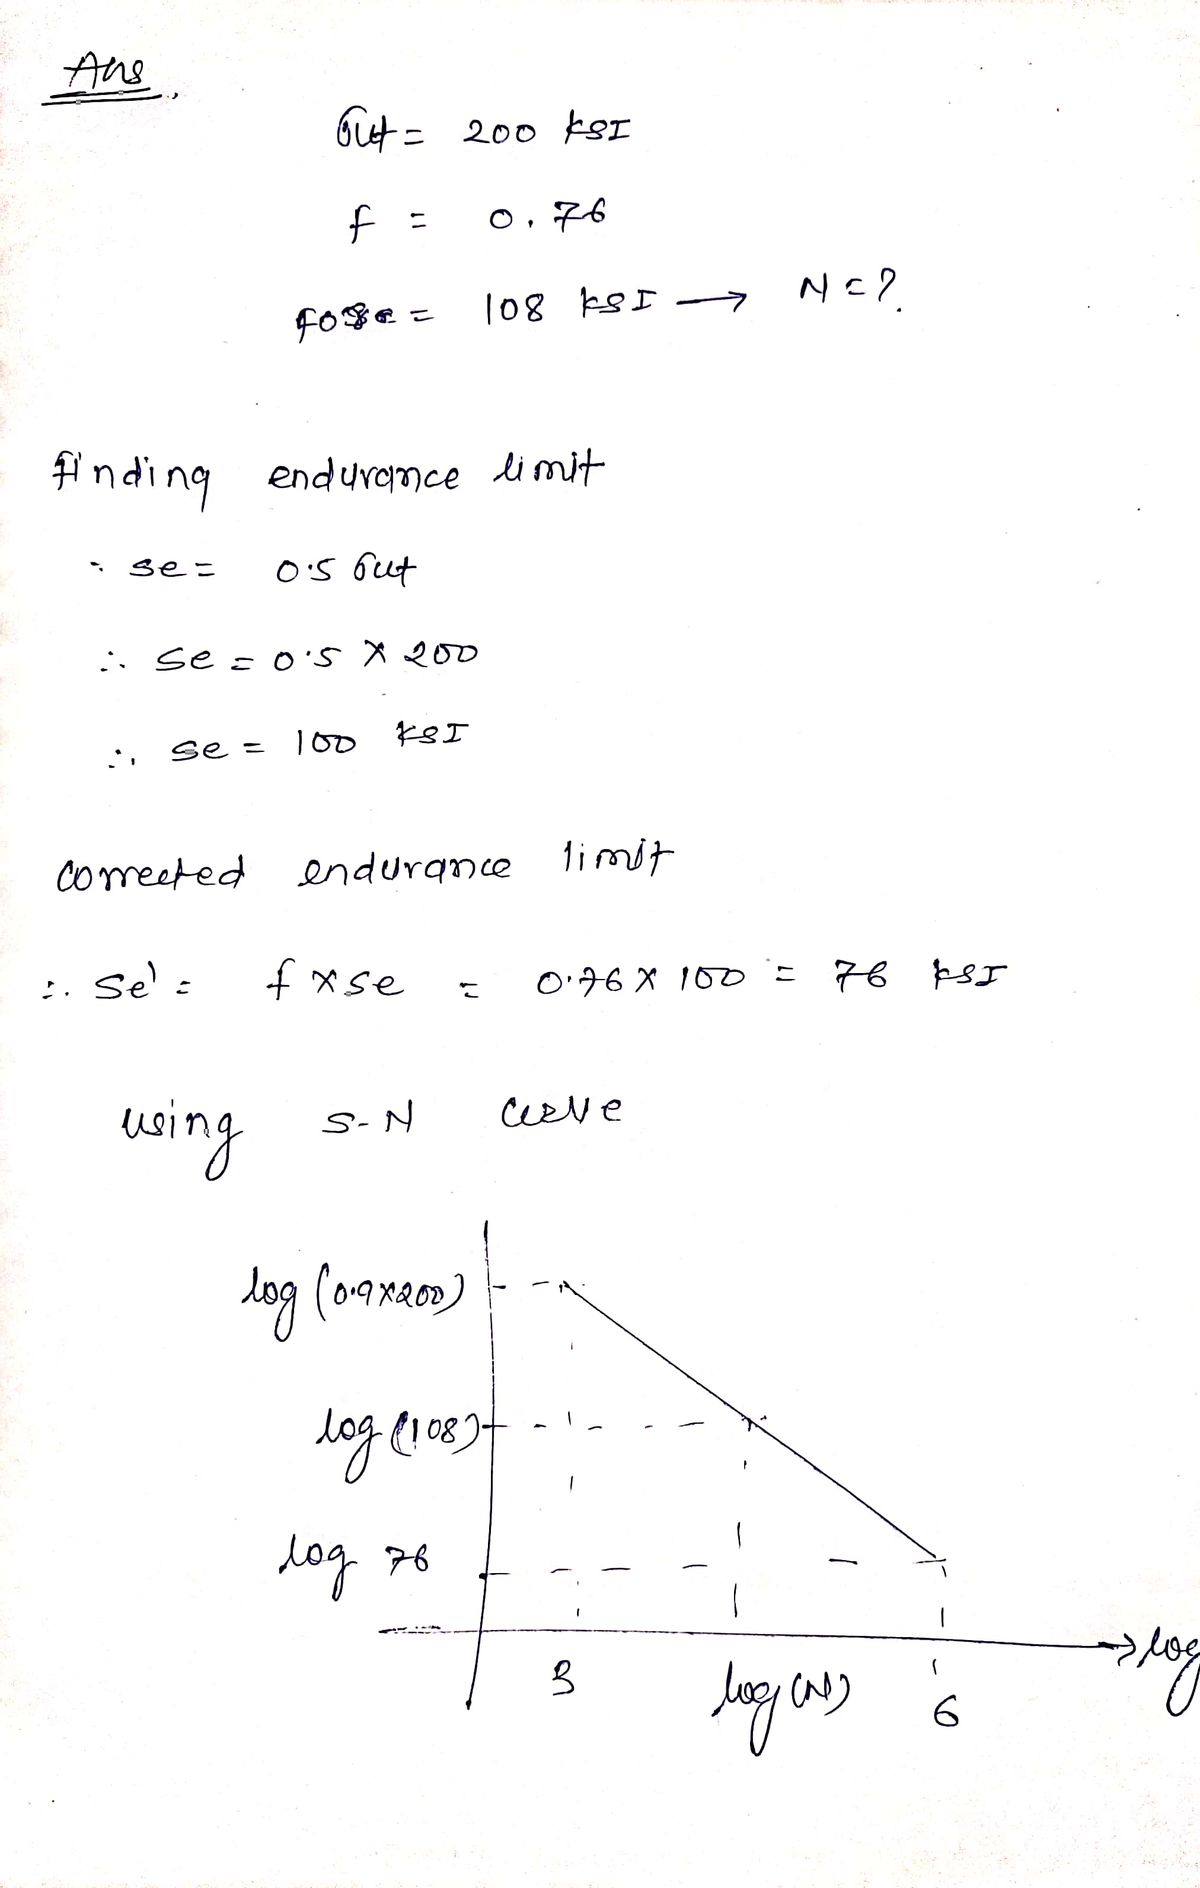 Ans,
σut = 200 KSI
f = 0.76
= 108 KSI → N = ?
finding endurance limit
∵ se = 0.5 σut
∴ se = 0.5 × 200
∴ se = 100 KSI
corrected endurance limit
∴ se' = f × se = 0.76 × 100 = 76 KSI
using S-N curve
log (0.9×200)
log (108)
log 76
3 log(N) 6
→ log